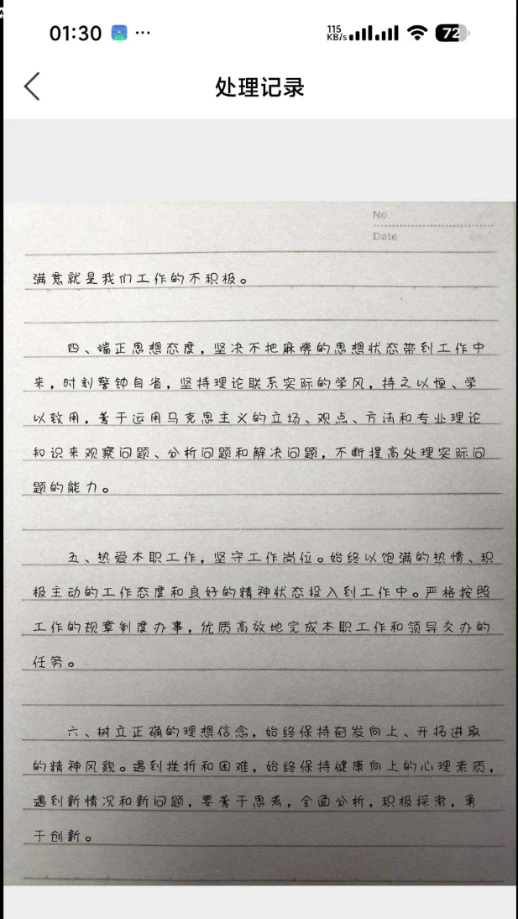 01:30 ...
115 KB/s 72
处理记录
No.
Date
满意就是我们工作的不积极。
四、端正思想态度，坚决不把麻痹的思想状态带到工作中
来，时刻警钟自省，坚持理论联系实际的学风，持之以恒、学
以致用，善于运用马克思主义的立场、观点、方法和专业理论
知识来观察问题、分析问题和解决问题，不断提高处理实际问
题的能力。
五、热爱本职工作，坚守工作岗位。始终以饱满的热情、积
极主动的工作态度和良好的精神状态投入到工作中。严格按照
工作的规章制度办事，优质高效地完成本职工作和领导交办的
任务。
六、树立正确的理想信念，始终保持奋发向上、开拓进取
的精神风貌。遇到挫折和困难，始终保持健康向上的心理素质，
遇到新情况和新问题，要善于思考，全面分析，积极探索，勇
于创新。